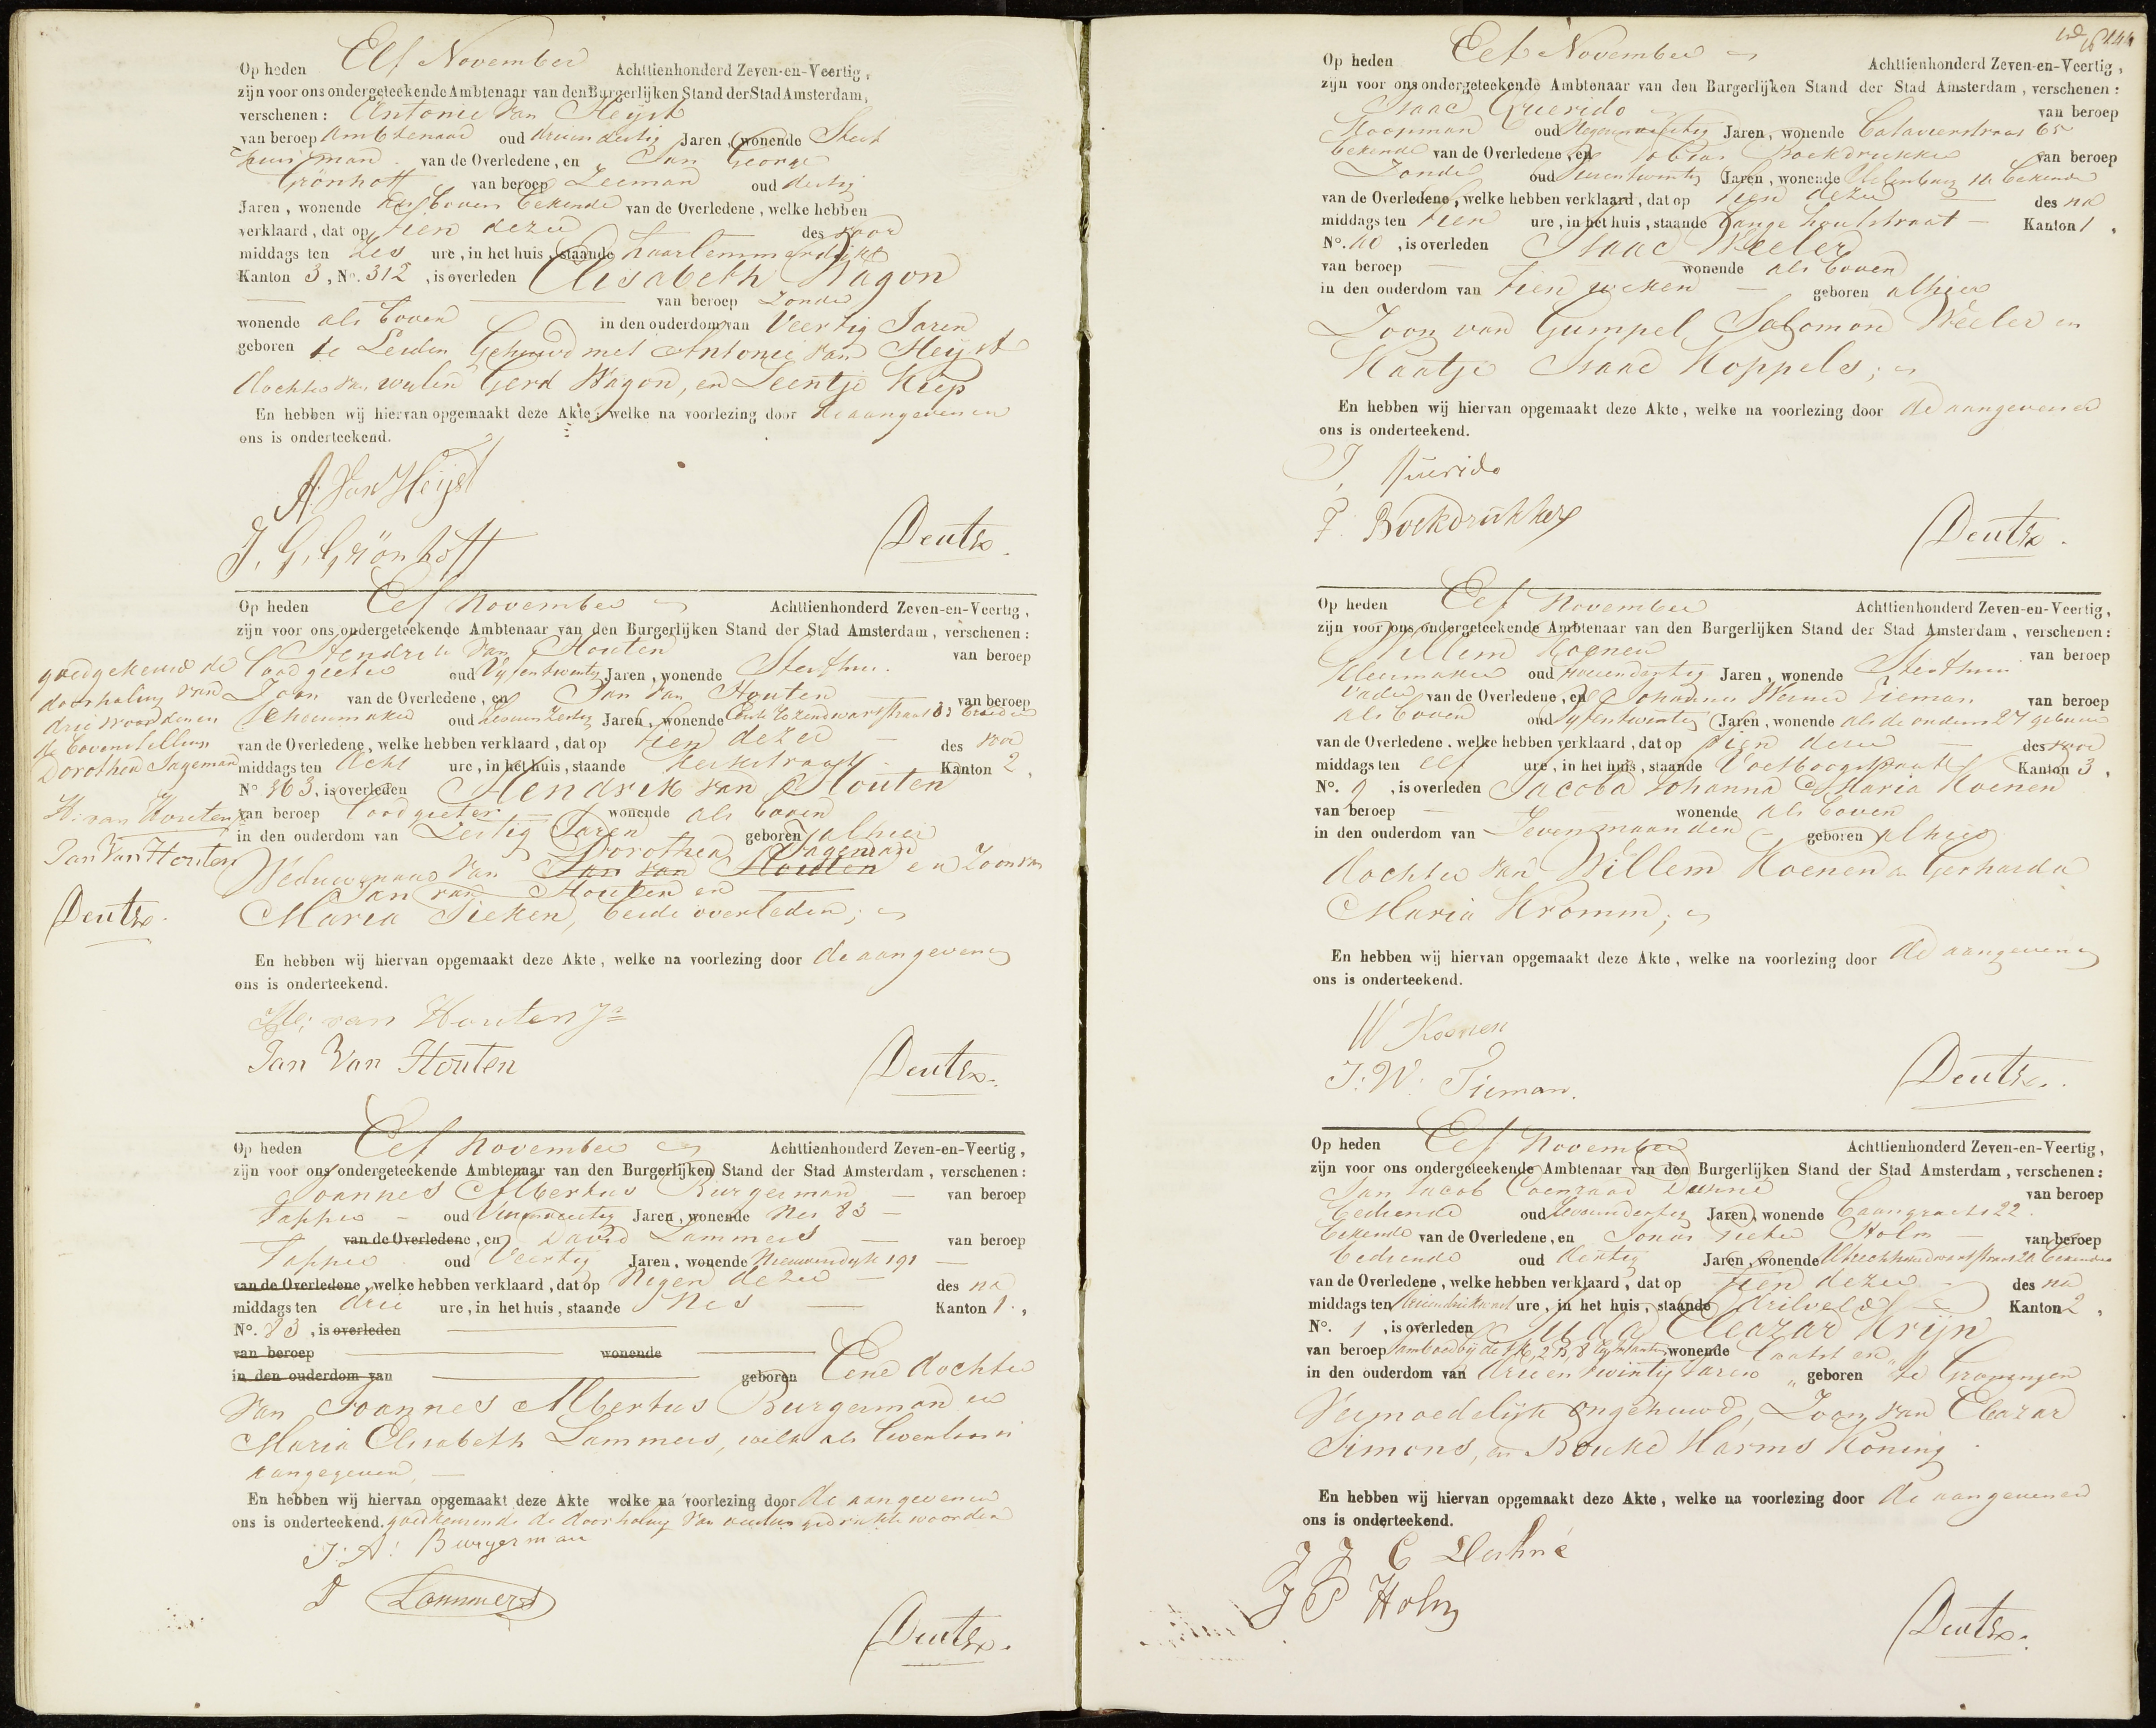 Op heden Elf November Achttienhonderd Zeven-en-Veertig,
zijn voor ons ondergeteekende Ambtenaar van den Burgerlijken Stand der Stad Amsterdam,
verschenen: Antonie van Heyst
van beroep Ambtenaar oud drieendertig Jaren, wonende Sterf
huis, man van de Overledene, en Jan George
Grönhoff van beroep Zeeman oud dertig
Jaren, wonende als boven bekende van de Overledene, welke hebben
verklaard, dat op tien dezer des voor
middags ten zes ure, in het huis, staande Haarlemmerdijk
Kanton 3, No. 312, is overleden Elisabeth Wagon
van beroep zonder
wonende als boven in den ouderdom van Veertig Jaren
geboren te Leiden Gehuwd met Antonie van Heyst
dochter van wijlen Gerd Wagon, en Leentje Kiep
En hebben wij hiervan opgemaakt deze Akte, welke na voorlezing door de aangeveren en
ons is onderteekend.
A. Van Heijst
J. G. Grönhoff
Deutz.
Op heden Elf November Achttienhonderd Zeven-en-Veertig,
zijn voor ons ondergeteekende Ambtenaar van den Burgerlijken Stand der Stad Amsterdam, verschenen:
Hendrik van Houten van beroep
Loodgieter oud Vyfentwintig Jaren, wonende Sterfhuis
Zoon van de Overledene, en Jan van Houten van beroep
Schoenmaker oud Jaren, wonende broeder
van de Overledene, welke hebben verklaard, dat op tien dezer des voor
middags ten Acht ure, in het huis, staande Kerkstraat Kanton 2,
No 263, is overleden Hendrik van Houten
van beroep loodgieter wonende als boven
in den ouderdom van Zestig Jaren geboren alhier
Dorothea Jageman
Weduwenaar van Jan van Houten en Zoon van
Jan van Houten en
Maria Sieken, beide overleden;
goedgekeurd de
doorhaling van
drie woorden en
de bovenstelling
Dorothea Jageman
H. van Houten Jr
Jan Van Houten
Deutz.
En hebben wij hiervan opgemaakt deze Akte, welke na voorlezing door de aangevers en
ons is onderteekend.
H. van Houten Jr
Jan Van Houten
Deutz.
Op heden Elf November Achttienhonderd Zeven-en-Veertig,
zijn voor ons ondergeteekende Ambtenaar van den Burgerlijken Stand der Stad Amsterdam, verschenen:
Joannes Albertus Burgerman van beroep
Tapper oud Jaren, wonende Nes 83
van de Overledene, en David Lammers van beroep
Tapper oud Veertig Jaren, wonende Nieuwendyk 191
van de Overledene, welke hebben verklaard, dat op Negen dezer des na
middags ten drie ure, in het huis, staande Nes Kanton 1,
No. 83, is overleden
van beroep wonende
in den ouderdom van geboren Eene dochter
van Joannes Albertus Burgerman en
Maria Elisabeth Lammers, welk als levenloos is
aangegeven,
En hebben wij hiervan opgemaakt deze Akte welke na voorlezing door de aangevers en
ons is onderteekend. goedkeurende de doorhaling van gedrukte woorden
J. A. Burgerman
D Lammers
Deutz.
144
Op heden Elf November Achttienhonderd Zeven-en-Veertig,
zijn voor ons ondergeteekende Ambtenaar van den Burgerlijken Stand der Stad Amsterdam, verschenen:
Isaac Querido van beroep
Koopman oud Jaren, wonende Batavierstraat 65
bekende van de Overledene, en Tobias Boekdrukker van beroep
Zonder oud Jaren, wonende Uilenburg bekende
van de Overledene, welke hebben verklaard, dat op tien dezer des na
middags ten tien ure, in het huis, staande Lange houtstraat Kanton 1,
No. 10, is overleden Isaac Weeler
van beroep wonende als boven
in den ouderdom van tien weken geboren alhier
Zoon van Gumpel Salomon Weeler en
Kaatje Isaac Koppels;
En hebben wij hiervan opgemaakt deze Akte, welke na voorlezing door de aangevers en
ons is onderteekend.
I. Querido
T. Boekdrukker
Deutz.
Op heden Elf November Achttienhonderd Zeven-en-Veertig,
zijn voor ons ondergeteekende Ambtenaar van den Burgerlijken Stand der Stad Amsterdam, verschenen:
Willem Koenen van beroep
Kleermaker oud Jaren, wonende Sterfhuis
Vader van de Overledene, en Johannes Werner Tieman van beroep
als boven oud Vyfentwintig Jaren, wonende als de andere 27 gebuur
van de Overledene, welke hebben verklaard, dat op tien dezer des voor
middags ten elf ure, in het huis, staande Voetboogstraat Kanton 3,
No. 9, is overleden Jacoba Johanna Maria Koenen
van beroep wonende als boven
in den ouderdom van Zeven maanden geboren alhier
dochter van Willem Koenen en Gerharda
Maria Kromm;
En hebben wij hiervan opgemaakt deze Akte, welke na voorlezing door de aangevers en
ons is onderteekend.
W Koenen
J. W. Tieman.
Deutz.
Op heden Elf November Achttienhonderd Zeven-en-Veertig,
zijn voor ons ondergeteekende Ambtenaar van den Burgerlijken Stand der Stad Amsterdam, verschenen:
Jan Jacob Coenraad van beroep
bediende oud Jaren, wonende 22
bekende van de Overledene, en Jonas Pieter Holm van beroep
bediende oud dertig Jaren, wonende bekende
van de Overledene, welke hebben verklaard, dat op tien dezer des na
middags ten ure, in het huis, staande Kanton 2,
No. 1, is overleden Juda Eleazar Krijn
van beroep wonende laatst en
in den ouderdom van drie en twintig Jaren geboren te Groningen
Vermoedelyk ongehuwd, Zoon van Eleazar
Simons, en Bouke Harms Koning
En hebben wij hiervan opgemaakt deze Akte, welke na voorlezing door de aangevers en
ons is onderteekend.
J J C
J P Holm
Deutz.